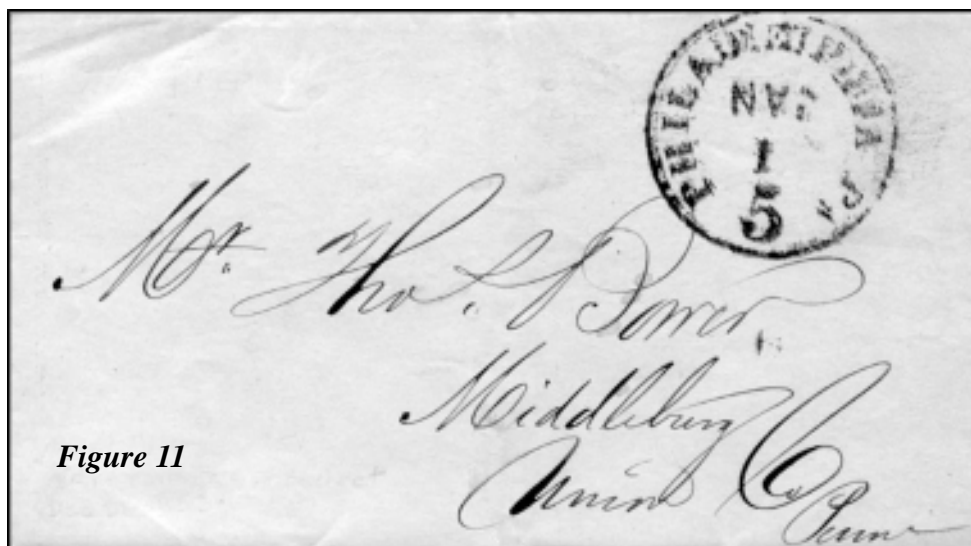 PHILADELPHIA Pa
JAN
1
5
Mr. Thos. Bower
Middleburg
Union Co
Penn
Figure 11